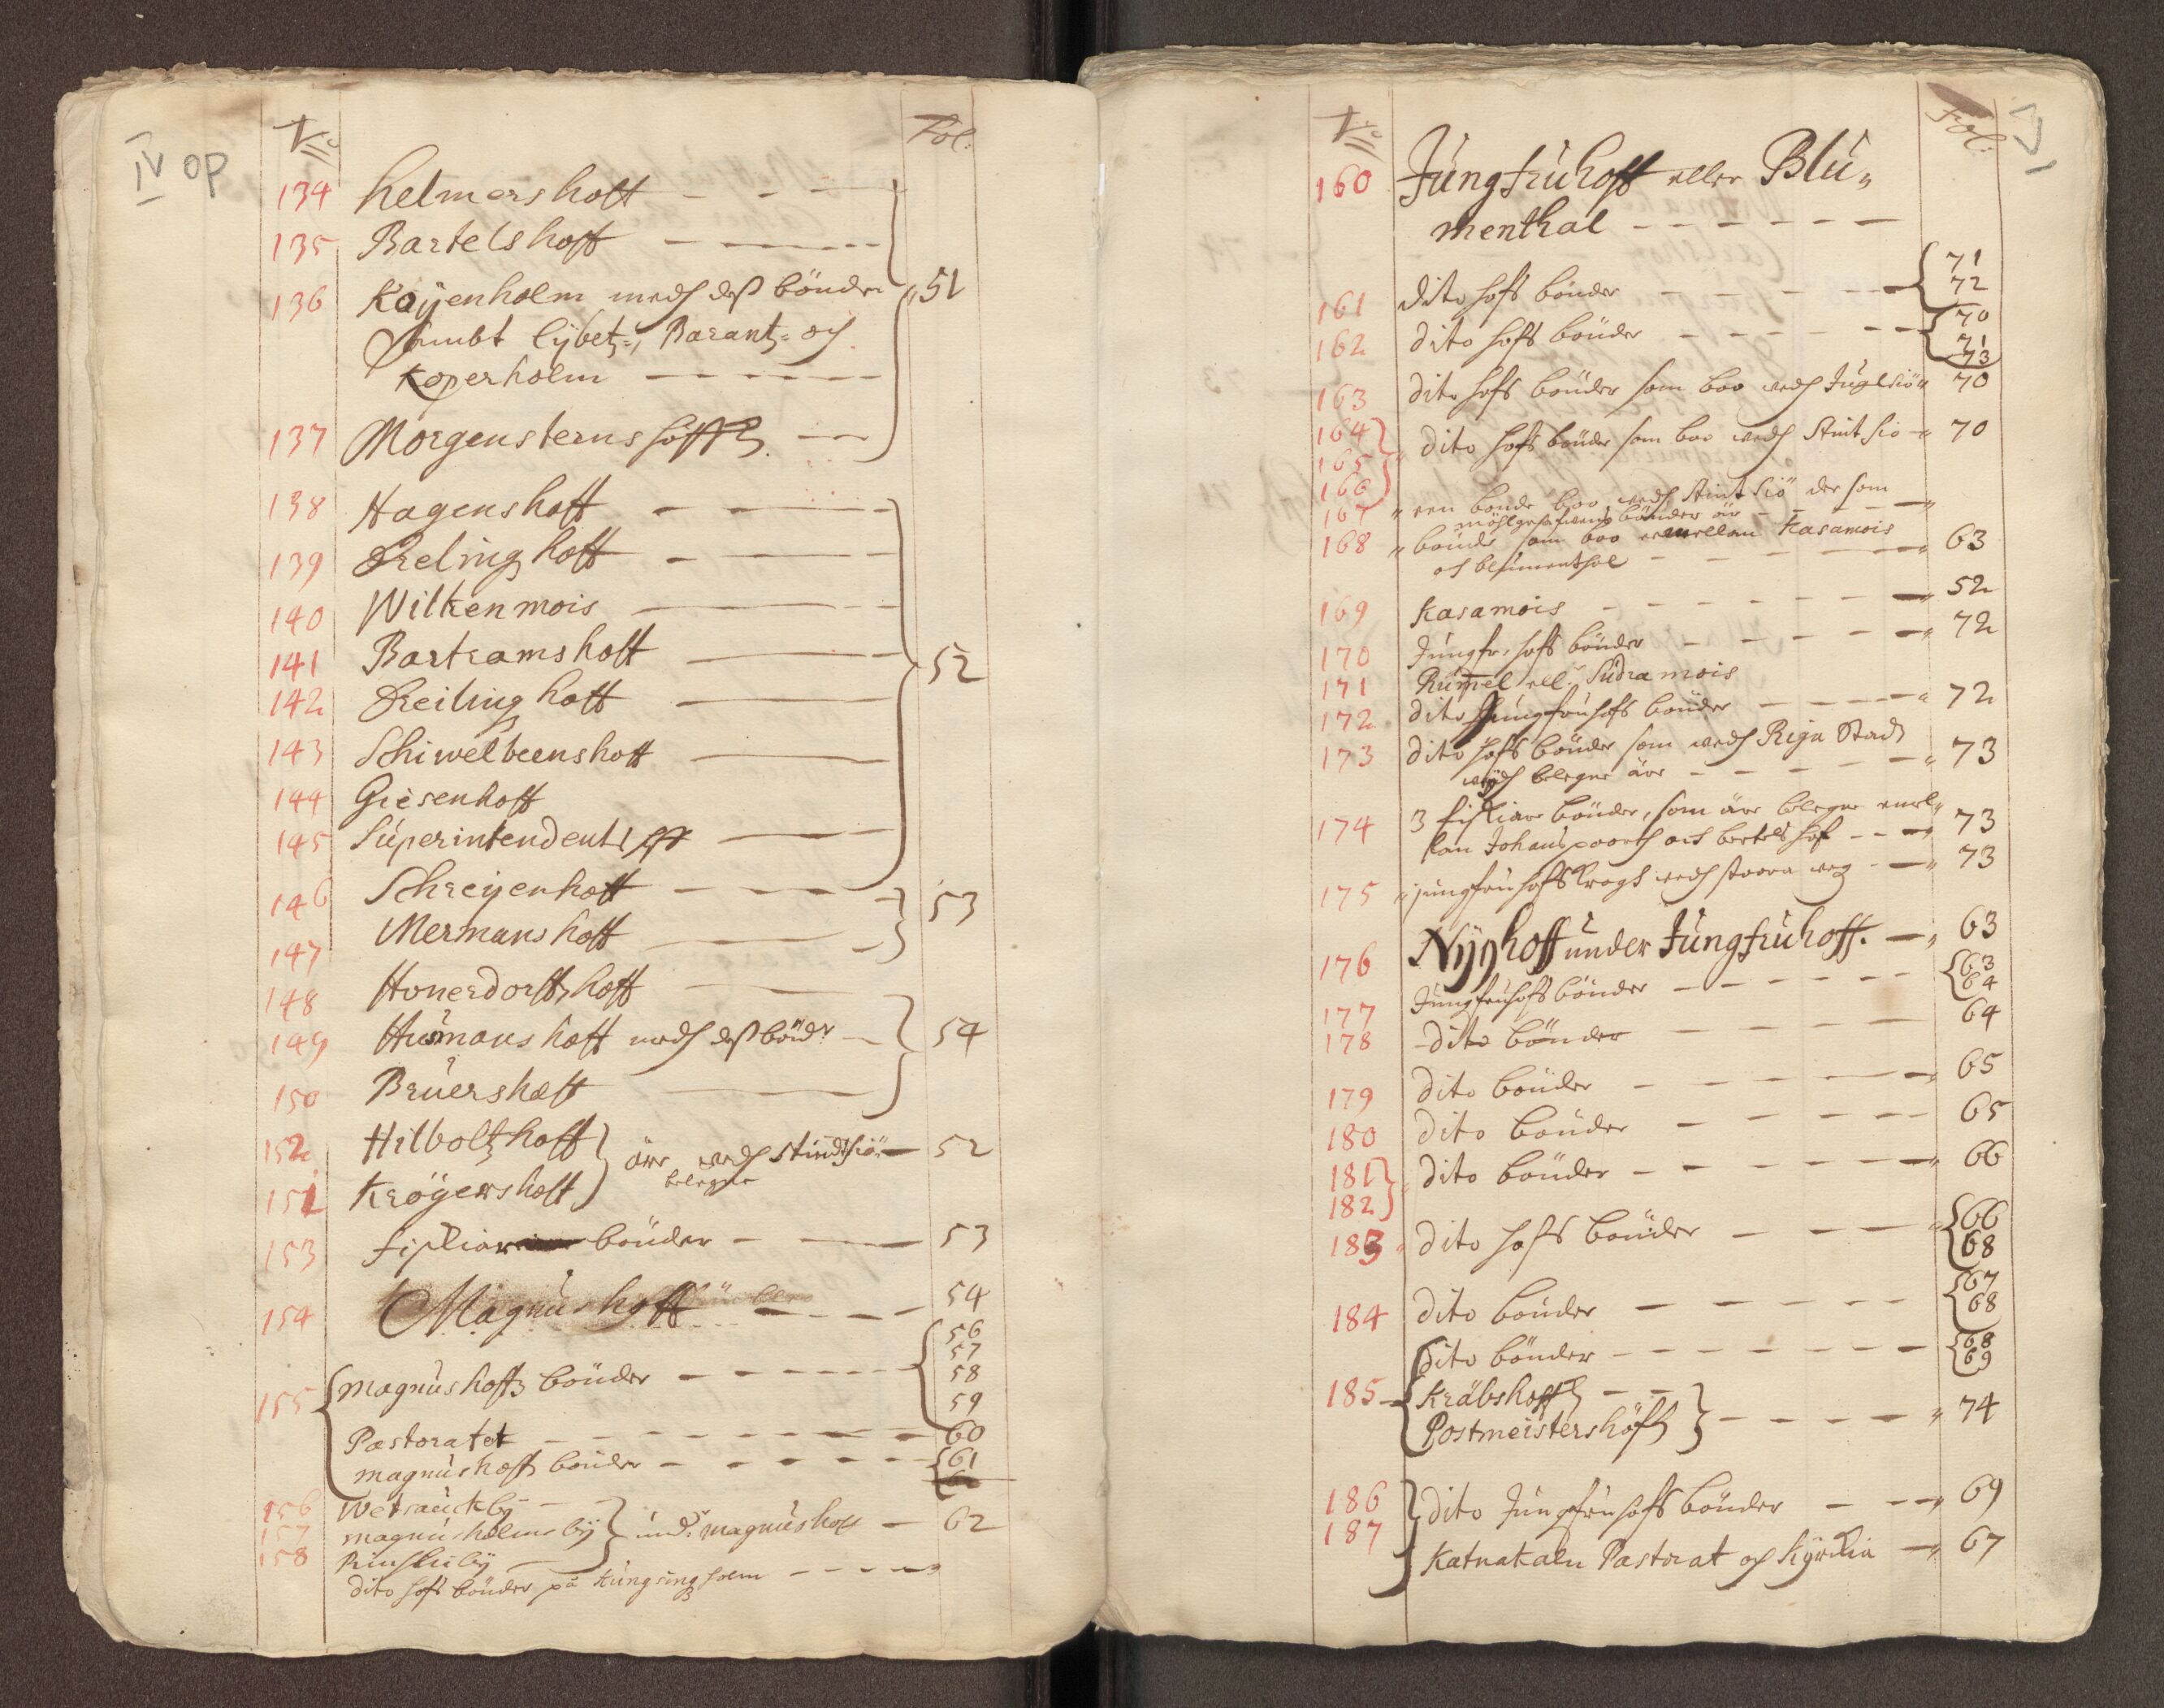 IV op
No Fol:
134 Helmershoff
135 Bartelshoff
136 Koÿenholm medh dess bönder 51
sambt Lÿbetz=, Barantz= och
Koperholm
137 Morgensterns hoff
138 Hagenshoff
139 Dreling hoff
140 Wilkenmois
141 Bartramshoff 52
142 Dreiling hoff
143 Schiwelbeenshoff
144 Giesenhoff
145 Superintendents
146 Schreÿenhoff 53
147 Mermans hoff
148 Honerdorffs hoff
149 Humans hoff medh dess bönd:r 54
150 Bruershoff
152 Hilboltz hoff
äre wedh Stindtsiö 52
belegne
151 Krögershoff
153 fiskiare bönder 53
154 Magnushoff 54
56
57
58
155 Magnushoffz bönder 59
Pastoratet 60
magnushoffz bönder 61
156 Wetsackbÿ
157 magnusholms bÿ und:r magnushoff 62
158 Rinskibÿ
dito hofs bönder på Kungsingzholm
No Fol:
160 Jungfruhoff eller Blu„
menthal
71
161 dito hofs bönder 72
70
162 dito hofs bönder 71
73
163 dito hofs bönder som boo wedh Jugelsiö 70
164
165 dito hofs bönder som boo wedh Stintsiö 70
166
167 een bonde boo wedh Stintsiö der som
bönder är
168 bönder som boo emellan Kasamois 63
och blumenthal
169 Kasamois 52
170 Jungfr: hofs bönder 72
171 Rumpel ell: Sudramois
172 dito Jungfruhofs bönder 72
173 dito hofs bönder som wedh Riga Stad
belegne äre 73
174 3 fiskiare bönder, som äre belegne emel„
lan Johans poorth och bertels hof 73
175 jungfruhofs krogh wedh stoora weg 73
176 Nÿhoff under Jungfruhoff. 63
63
177 Jungfruhofs bönder 64
178 dito bönder 64
179 dito bönder 65
180 dito bönder 65
181 dito bönder 66
182
66
183 dito hofs bönder 68
67
184 dito bönder 68
dito bönder 68
69
185 Kräbshoff
Postmeistershoff 74
186 dito Jungfruhofs bönder 69
187
Katnakaln Pastorat och Kÿrkia 67